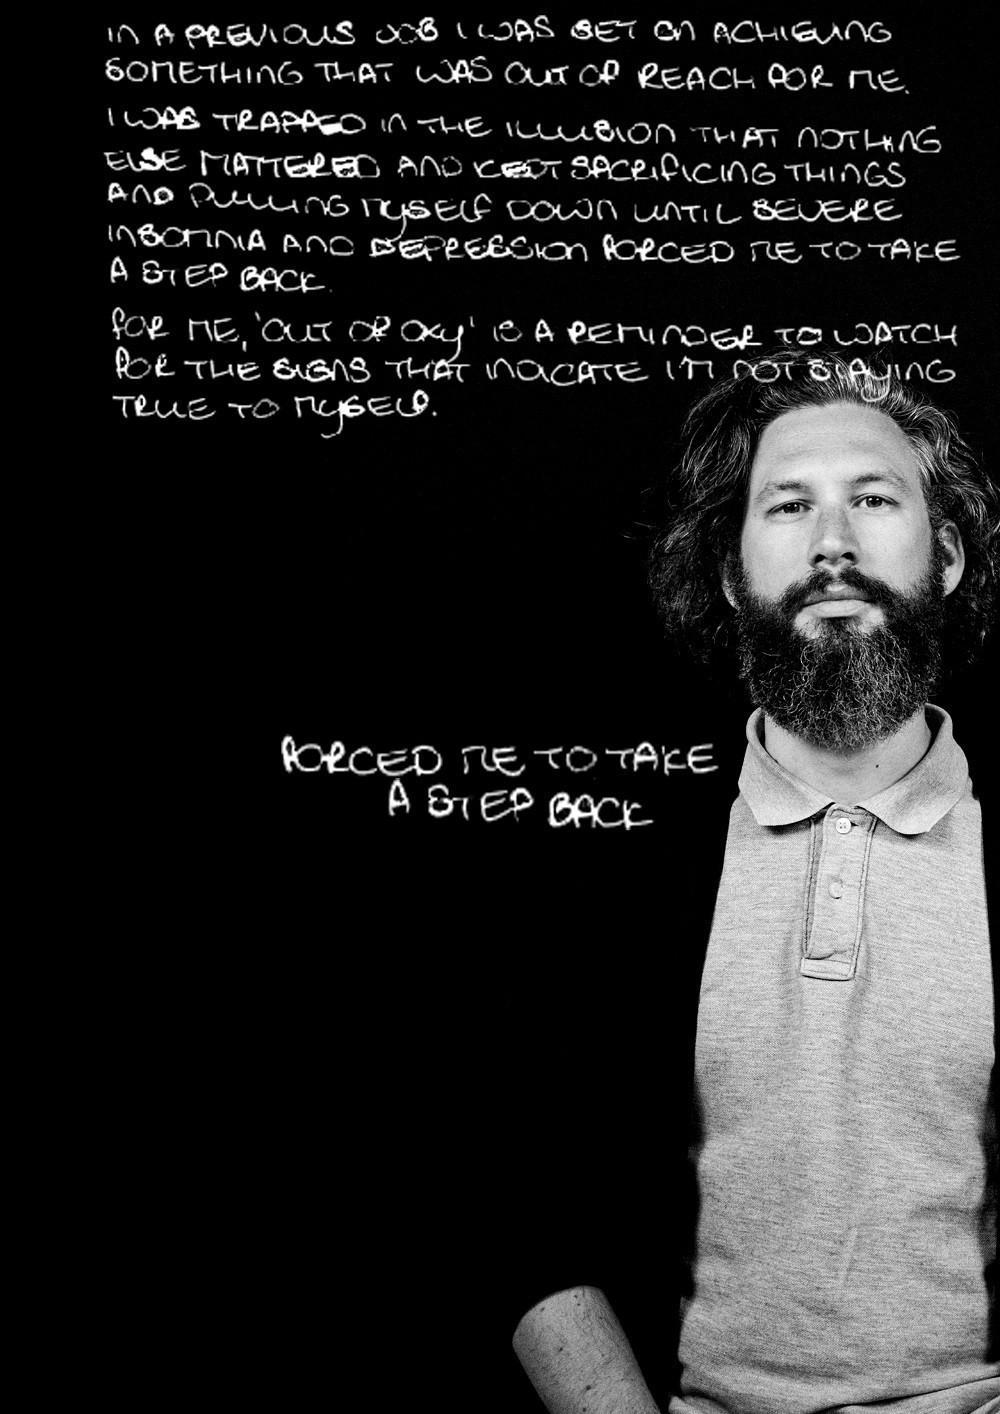 IN A PREVIOUS JOB I WAS SET ON ACHIEVING
SOMETHING THAT WAS OUT OF REACH FOR ME.
I WAS TRAPPED IN THE ILLUSION THAT NOTHING
ELSE MATTERED AND KEPT SACRIFICING THINGS
AND PULLING MYSELF DOWN UNTIL SEVERE
INSOMNIA AND DEPRESSION FORCED ME TO TAKE
A STEP BACK.
FOR ME, 'OUT OF OXY' IS A REMINDER TO WATCH
FOR THE SIGNS THAT INDICATE I'M NOT STAYING
TRUE TO MYSELF.
FORCED ME TO TAKE
A STEP BACK